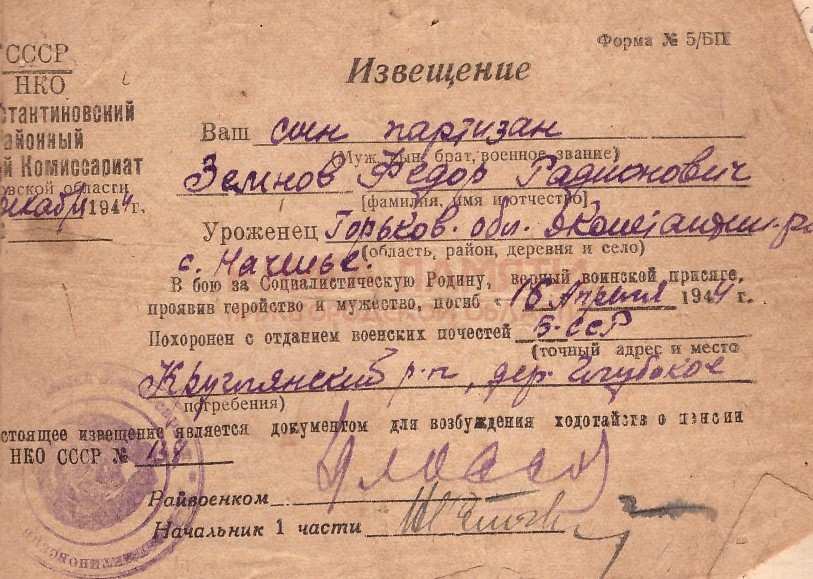 Форма № 5/БП
СССР
НКО
стантиновский
айонный
й Комиссариат
овской области
декабря 1944 г.
Извещение
Ваш сын партизан
(Муж, сын, брат, военное звание)
Земнов Федор Радионович
[фамилия, имя и отчество]
Уроженец Горьков. обл.
(область, район, деревня и село)
с.
В бою за Социалистическую Родину, верный воинской присяге,
проявив геройство и мужество, погиб « 16 Апреля 1944 г.
Похоронен с отданием военских почестей Б-ССР
(точный адрес и место
Круглянский р-н, дер. Глубокое
потребения)
стоящее извещение является документом для возбуждения ходотайств о пенсии
НКО СССР № 139
Райвоенком
Начальник 1 части